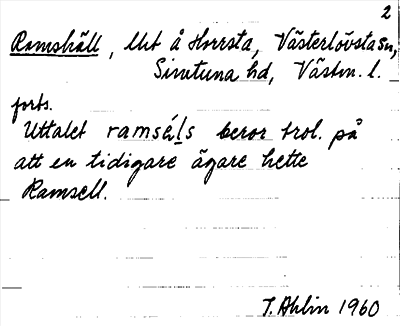 2
Ramshäll, lht å Horrsta, Västerlövsta sn,
Simtuna hd, Västm. l.
forts.
Uttalet ramsél̲s beror trol. på
att en tidigare ägare hette
Ramsell.
T. Ahlin 1960